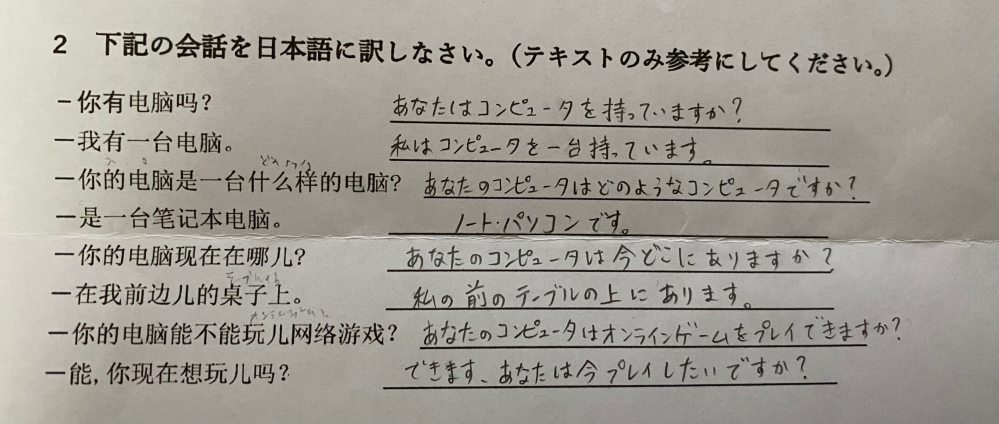 2 下記の会話を日本語に訳しなさい。（テキストのみ参考にしてください。）
－你有电脑吗？ あなたはコンピュータを持っていますか？
－我有一台电脑。 私はコンピュータを一台持っています。
－你的电脑是一台什么样的电脑？ あなたのコンピュータはどのようなコンピュータですか？
－是一台笔记本电脑。 ノート・パソコンです。
－你的电脑现在在哪儿？ あなたのコンピュータは今どこにありますか？
－在我前边儿的桌子上。 私の前のテーブルの上にあります。
－你的电脑能不能玩儿网络游戏？ あなたのコンピュータはオンラインゲームをプレイできますか？
－能，你现在想玩儿吗？ できます、あなたは今プレイしたいですか？